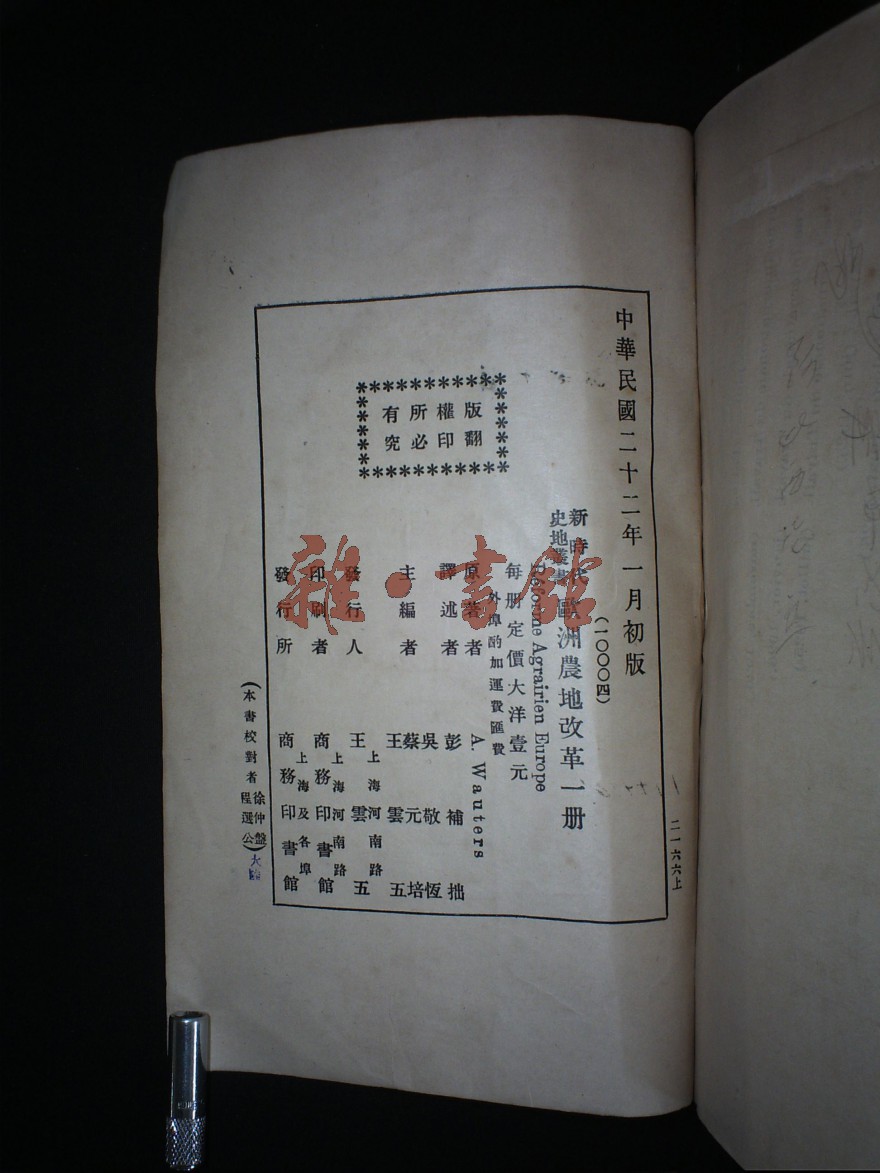 中華民國二十二年一月初版
(一〇〇〇四)
新時代
史地叢書
歐洲農地改革一册
Réforme Agrairien Europe
每册定價大洋壹元
外埠酌加運費匯費
版權所有
翻印必究
原著者 A. Wauters
譯述者 彭補拙
主編者 吳敬恆
蔡元培
王雲五
發行人 王雲五
上海河南路
印刷者 商務印書館
上海河南路
發行所 商務印書館
上海及各埠
(本書校對者 徐仲盤
程選公)
二一六六上
雜·書館